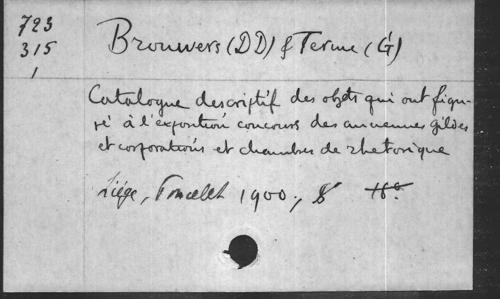 723
315
1
Brouwers (DD) & Terme (G)
Catalogue descriptif des objets qui ont figu-
ré à l'exposition concours des anciennes gildes
et corporations et chambres de rhétorique
Liége, Poncelet 1900, 8°